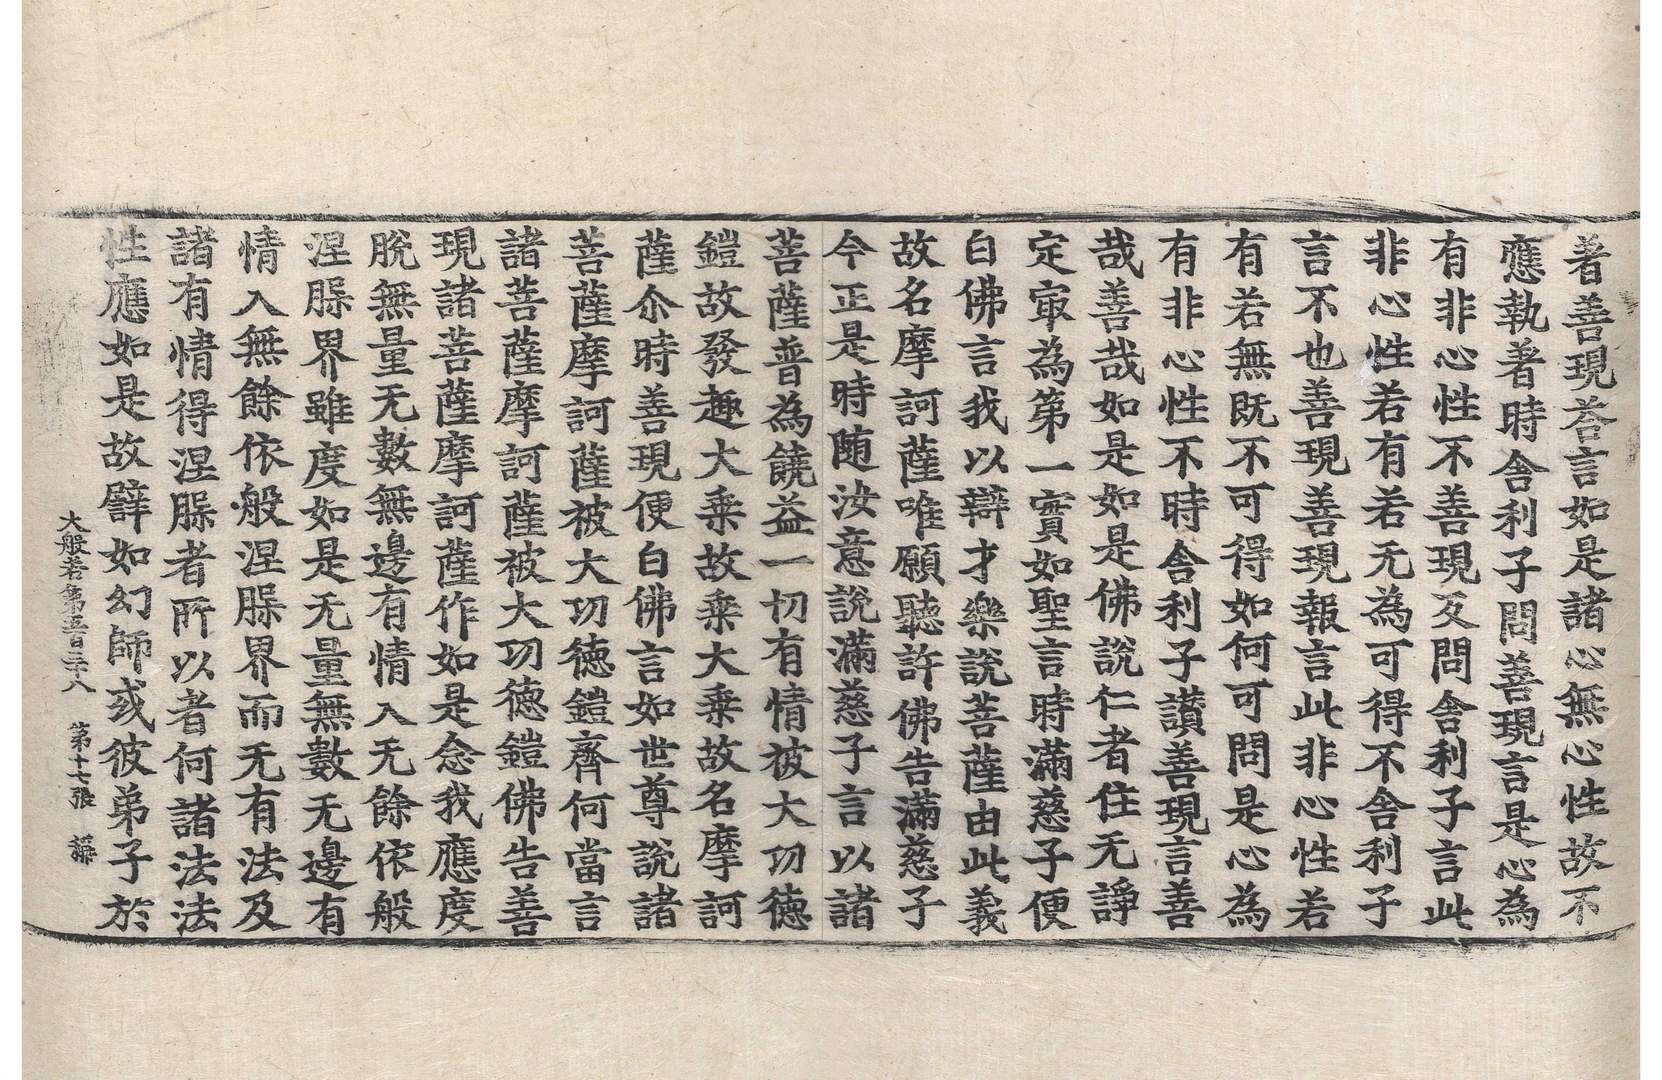 著善現荅言如是諸心無心性故不
應執著時舍利子問善現言是心為
有非心性不善現反問舍利子言此
非心性若有若无為可得不舍利子
言不也善現善現報言此非心性若
有若無既不可得如何可問是心為
有非心性不時舍利子讃善現言善
哉善哉如是如是佛說仁者住无諍
定㝡為第一實如聖言時滿慈子便
白佛言我以辯才樂說菩薩由此義
故名摩訶薩唯願聽許佛告滿慈子
今正是時随汝意說滿慈子言以諸
菩薩普為饒益一切有情被大功德
鎧故發趣大乗故乗大乗故名摩訶
薩尒時善現便白佛言如世尊說諸
菩薩摩訶薩被大功德鎧齊何當言
諸菩薩摩訶薩被大功德鎧佛告善
現諸菩薩摩訶薩作如是念我應度
脫無量无數無邊有情入无餘依般
涅槃界雖度如是无量無數无邊有
情入無餘依般涅槃界而无有法及
諸有情得涅槃者所以者何諸法法
性應如是故譬如幻師或彼弟子於
大般若第五百三十八 第十七張